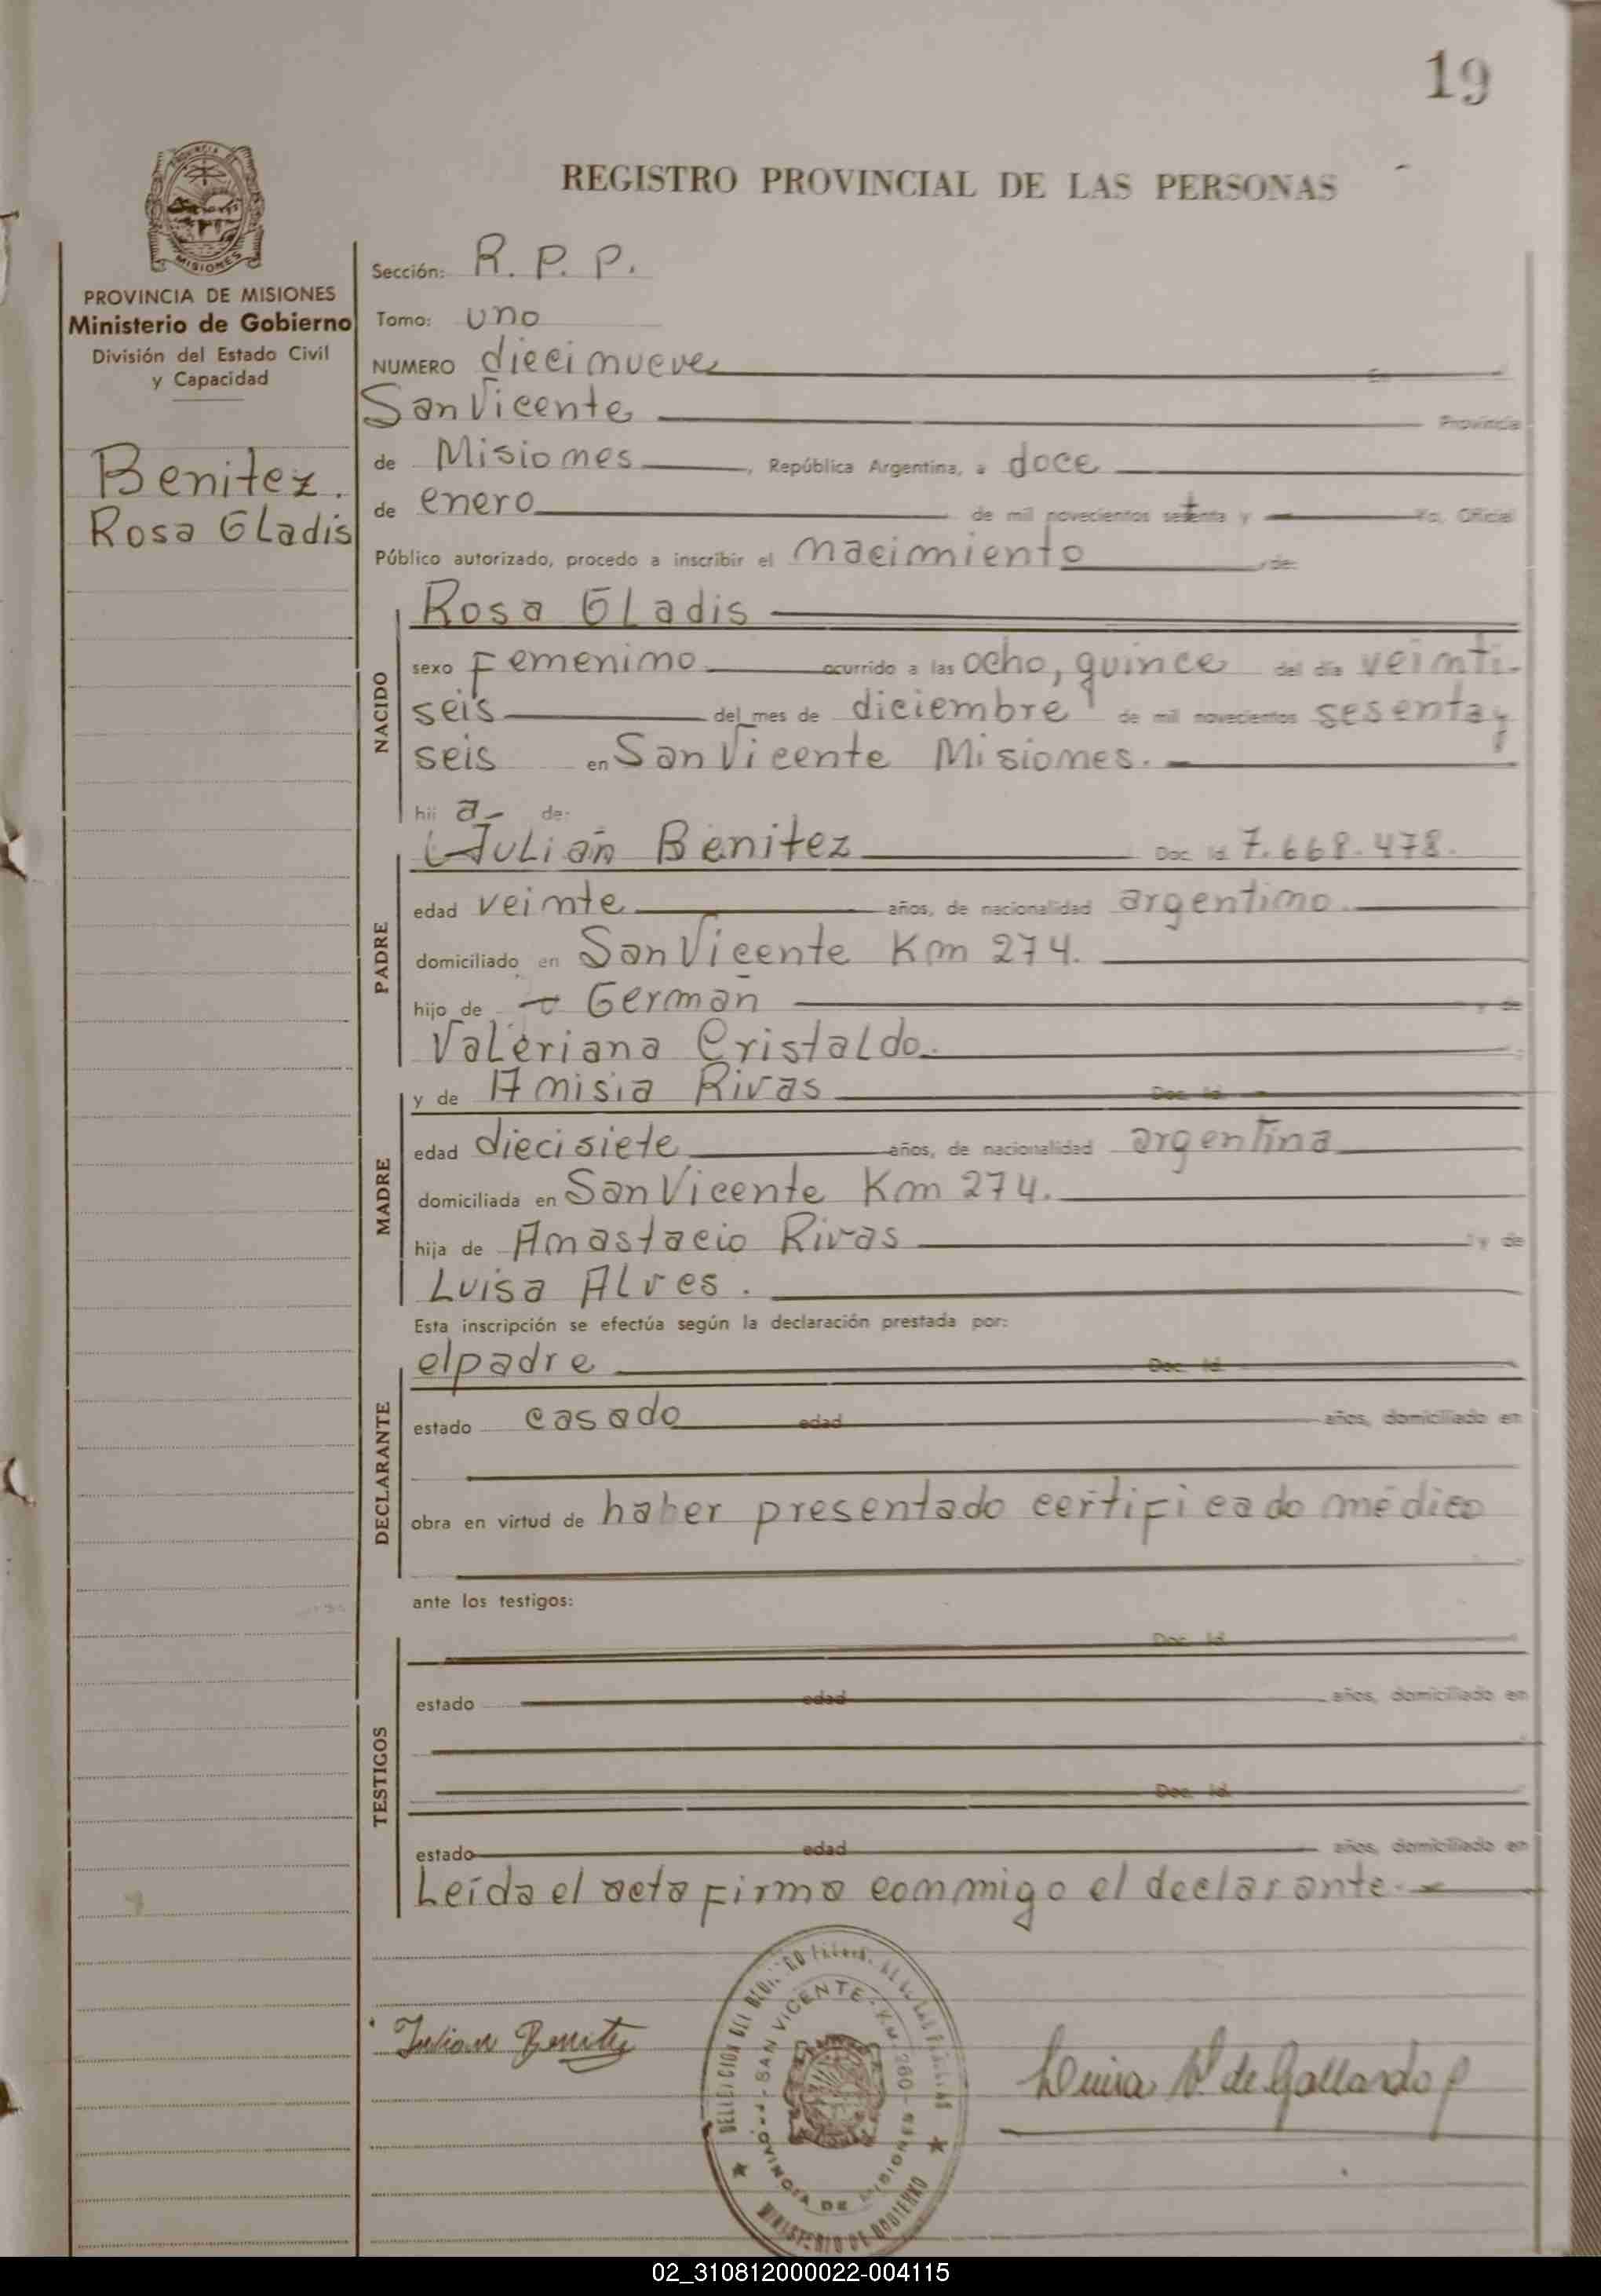 19
REGISTRO PROVINCIAL DE LAS PERSONAS
MISIONES
PROVINCIA DE MISIONES
Ministerio de Gobierno
División del Estado Civil
y Capacidad
Benitez.
Rosa Gladis
Sección: R. P. P.
Tomo: uno
NUMERO diecinueve En
San Vicente Provincia
de Misiones, República Argentina, a doce
de enero de mil novecientos setenta y Yo, Oficial
Público autorizado, procedo a inscribir el nacimiento de:
NACIDO
Rosa Gladis
sexo Femenino ocurrido a las ocho, quince del día veinti-
seis del mes de diciembre de mil novecientos sesenta y
seis en San Vicente Misiones.
hij a de:
PADRE
Julián Benitez Doc. Id. 7.668.478.
edad veinte años, de nacionalidad argentino.
domiciliado en San Vicente Km 274.
hijo de Germán y de
Valeriana Cristaldo.
MADRE
y de Amisia Rivas Doc. Id.
edad diecisiete años, de nacionalidad argentina
domiciliada en San Vicente Km 274.
hija de Anastacio Rivas y de
Luisa Alves.
Esta inscripción se efectúa según la declaración prestada por:
DECLARANTE
el padre Doc. Id.
estado casado edad años, domiciliado en
obra en virtud de haber presentado certificado médico
ante los testigos:
TESTIGOS
Doc. Id.
estado edad años, domiciliado en
Doc. Id.
estado edad años, domiciliado en
Leída el acta firma conmigo el declarante.
Julian Benitez
SAN VICENTE
PROVINCIA DE MISIONES
MINISTERIO DE GOBIERNO
de Gallardo
02_310812000022-004115